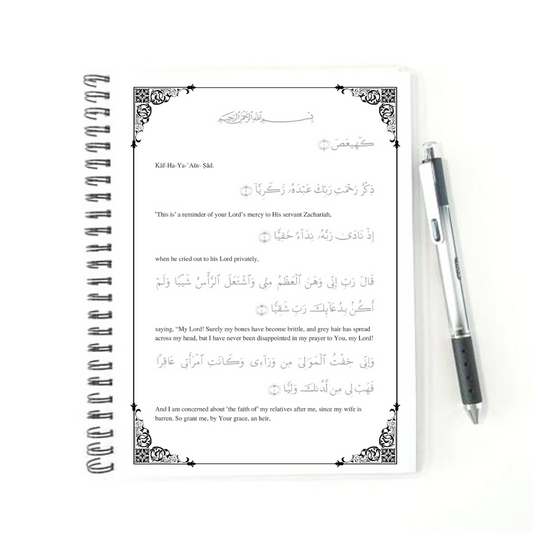 بِسْمِ ٱللَّهِ ٱلرَّحْمَٰنِ ٱلرَّحِيمِ
كٓهيعٓصٓ ١
Kãf-Ha-Ya-'Aĩn- Ṣãd.
ذِكْرُ رَحْمَتِ رَبِّكَ عَبْدَهُۥ زَكَرِيَّآ ٢
'This is' a reminder of your Lord’s mercy to His servant Zachariah,
إِذْ نَادَىٰ رَبَّهُۥ نِدَآءً خَفِيًّا ٣
when he cried out to his Lord privately,
قَالَ رَبِّ إِنِّى وَهَنَ ٱلْعَظْمُ مِنِّى وَٱشْتَعَلَ ٱلرَّأْسُ شَيْبًا وَلَمْ
أَكُنۢ بِدُعَآئِكَ رَبِّ شَقِيًّا ٤
saying, “My Lord! Surely my bones have become brittle, and grey hair has spread
across my head, but I have never been disappointed in my prayer to You, my Lord!
وَإِنِّى خِفْتُ ٱلْمَوَٰلِىَ مِن وَرَآءِى وَكَانَتِ ٱمْرَأَتِى عَاقِرًا
فَهَبْ لِى مِن لَّدُنكَ وَلِيًّا ٥
And I am concerned about 'the faith of' my relatives after me, since my wife is
barren. So grant me, by Your grace, an heir,